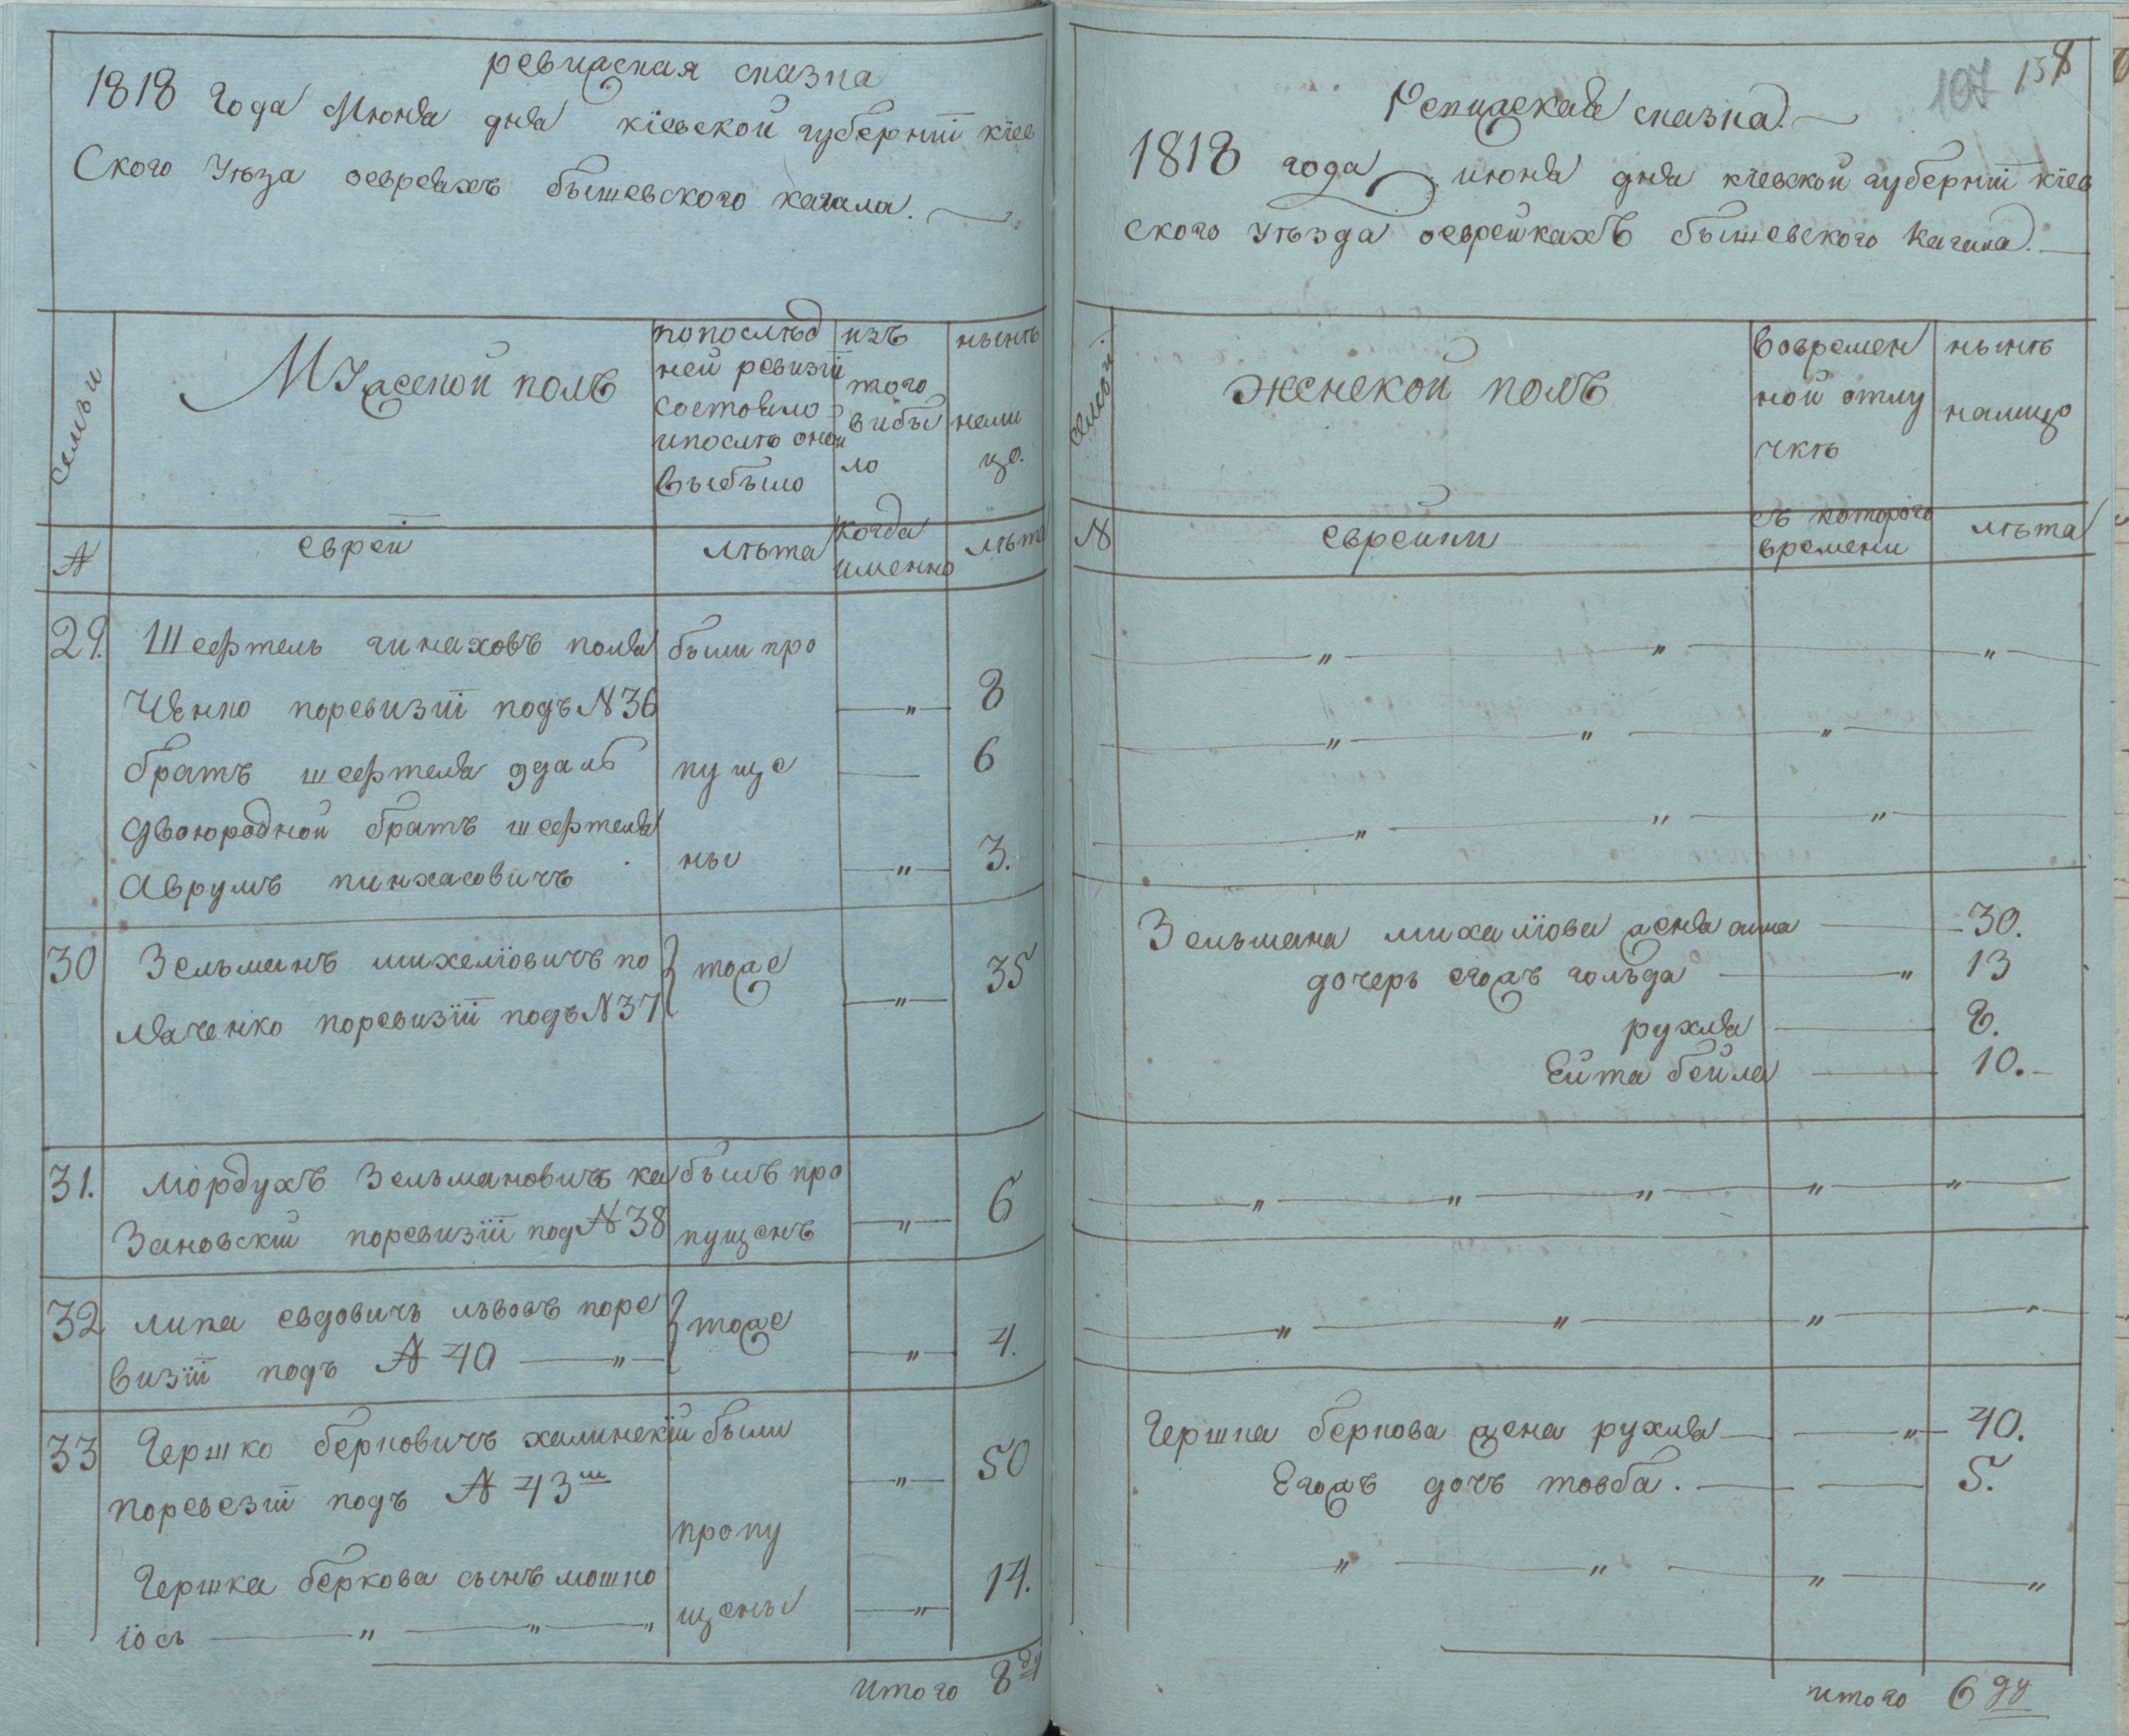 ревизская сказка
1818 года Июня дня кіевской губерніи кіев
ского уѣза оевреяхъ бышевского кагала.
Семьи
Мужеской полъ
попослѣд
ней ревизіи
состояло
ипослѣ оной
выбыло
изъ
того
вибы
ло
нынѣ
нали
цо.
№
еврей
лѣта
когда
именно
лѣта
29. Шефтель
поля были про
ченко поревизіи подъ №36 „ 8
братъ шефтеля пуще 6
Двоюродной братъ шефтеля
Аврумъ пинхасовичъ ны „ 3.
30 Зельманъ михелiовичъ по тоже 35
ляченко поревизіи подъ №37 „
31. Мордухъ Зельмановичъ ка былъ про
Зановскій поревизіи под №38 пущенъ „ 6
32 липа евдовичъ поре тоже
визіи подъ № 40 „ „ 4.
33 Гершко берковичъ халинскій были 50
поревезіи подъ № 43 „
пропу
Гершка беркова сынъ мошко 14.
іось „ „ „ щены „
итого 8 ду
107 158
Ревижская сказка.
1818 года июня дня кіевской губерніи кіев
ского уѣзда оеврейкахъ бышевского кагала.
семьи
женской полъ
вовремен
ной отлу
чкѣ
нынѣ
налицо
№
еврейки
съ которого
времени
лѣта
„ „ „
„ „ „
„ „ „
Зельмана михаліова жена 30.
дочерь егожъ гольда „ 13
рухля 8.
Ейта бейла 10.
„ „ „ „ „
„ „ „ „
Гершка беркова жена рухля „ 40.
Егожъ дочь товба. 5.
„ „ „ „
итого 6 ду